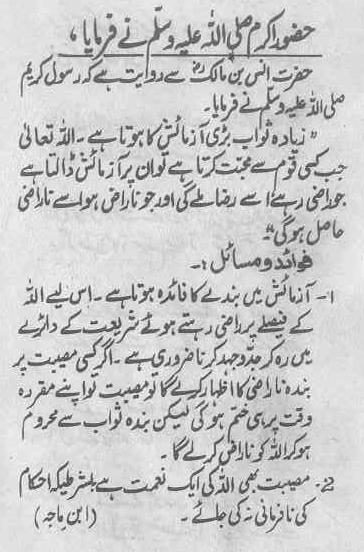 حضور اکرم صلی اللہ علیہ وسلم نے فرمایا،
حضرت انس بن مالکؓ سے روایت ہے کہ رسول کریم
صلی اللہ علیہ وسلم نے فرمایا۔
"زیادہ ثواب بڑی آزمائش کا ہوتا ہے۔ اللہ تعالیٰ
جب کسی قوم سے محبت کرتا ہے تو ان پر آزمائش ڈالتا ہے
جو راضی رہے اسے رضا ملے گی اور جو ناراض ہو اسے ناراضی
حاصل ہوگی"
فوائد و مسائل :۔
۱- آزمائش میں بندے کا فائدہ ہوتا ہے۔ اس لیے اللہ
کے فیصلے پر راضی رہتے ہوئے شریعت کے دائرے
میں رہ کر جدوجہد کرنا ضروری ہے۔ اگر کسی مصیبت پر
بندہ ناراضی کا اظہار کرلے گا تو مصیبت تو اپنے مقررہ
وقت پر ہی ختم ہوگی لیکن بندہ ثواب سے محروم
ہوکر اللہ کو ناراض کرلے گا۔
2- مصیبت بھی اللہ کی ایک نعمت ہے بشرطیکہ احکام
کی نافرمانی نہ کی جائے۔ (ابن ماجہ)